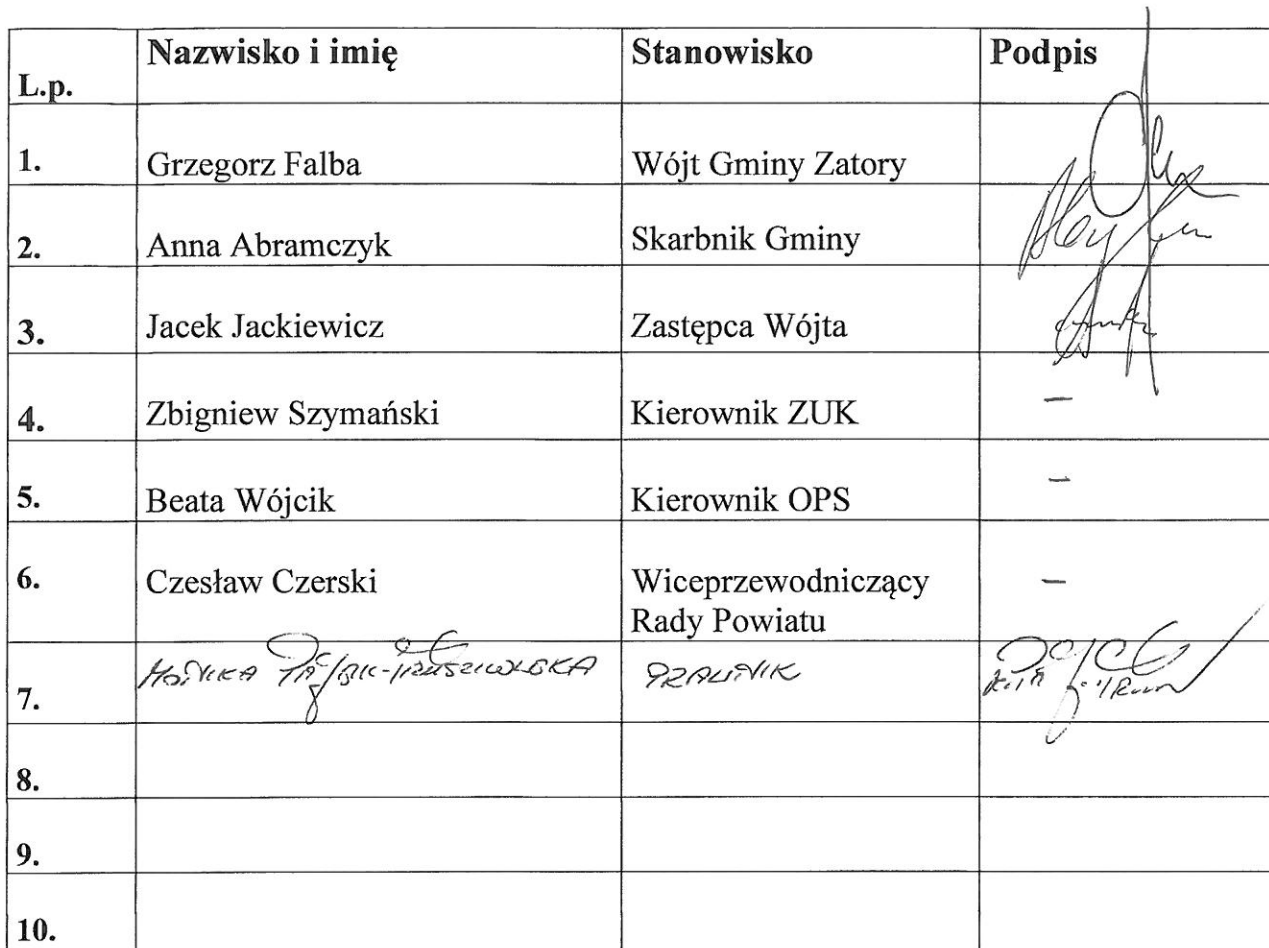 L.p. Nazwisko i imię Stanowisko Podpis
1. Grzegorz Falba Wójt Gminy Zatory
2. Anna Abramczyk Skarbnik Gminy
3. Jacek Jackiewicz Zastępca Wójta
4. Zbigniew Szymański Kierownik ZUK –
5. Beata Wójcik Kierownik OPS –
6. Czesław Czerski Wiceprzewodniczący –
Rady Powiatu
7. MONIKA
8.
9.
10.